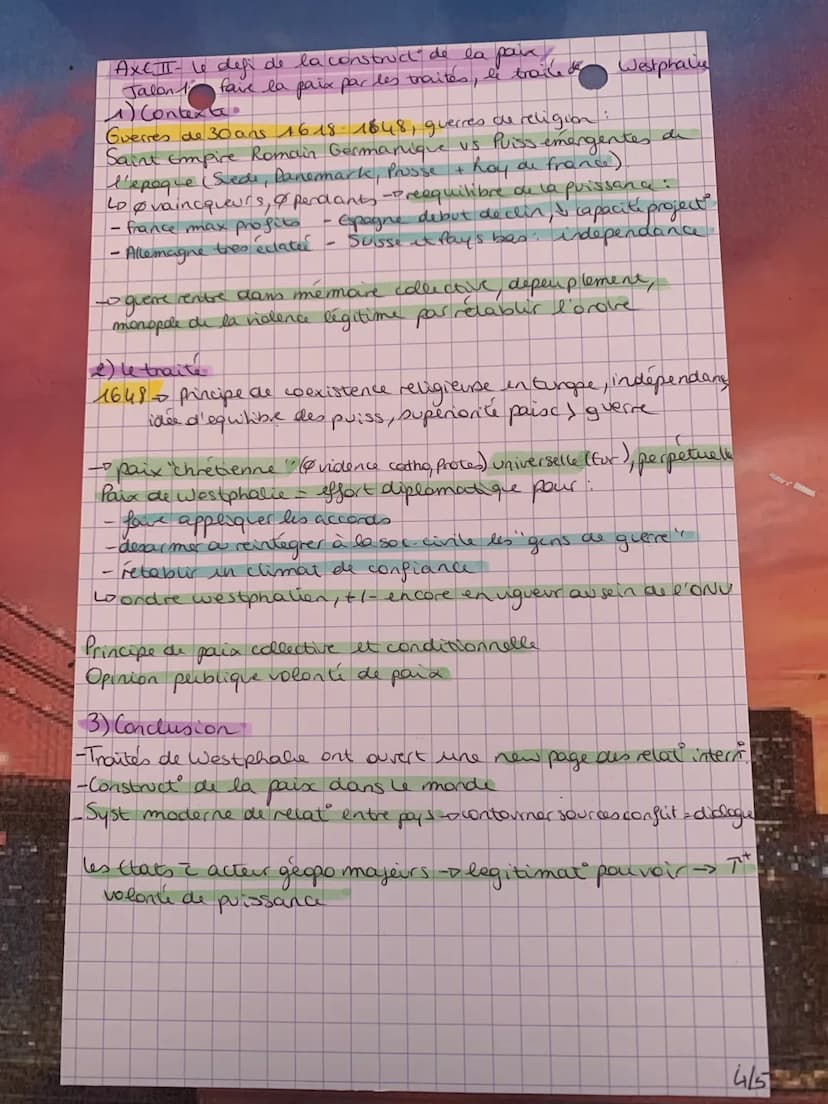 Axe II - le defi de la construct° de la paix
Jalon 1 : faire la paix par les traités, le traité de Westphalie
1) Contexte.
Guerres de 30 ans 1618-1648, guerres de religion :
Saint Empire Romain Germanique vs Puiss émergentes de
l'epoque (Suede, Danemark, Prusse + Roy. de france)
↳ ∅ vaincqueurs, ∅ perdants → reequilibre de la puissance :
- france max profits - Espagne debut declin, ↓ capacité project°
- Allemagne tres éclatée - Suisse et Pays bas : independance
→ guerre rentre dans mémoire collective, depeuplement,
monopole de la violence légitime pas rétablir l'ordre
2) le traité
1648 → principe de coexistence religieuse en Europe, indépendance
idée d'equilibre des puiss, supériorité paix > guerre
→ paix "chrétienne" (∅ violence catho, Protes) universelle (Eur), perpétuelle
Paix de Westphalie = effort diplomatique pour :
- faire appliquer les accords
- desarmer et reintégrer à la soc. civile les "gens de guerre"
- rétablir un climat de confiance
↳ ordre westphalien, +/- encore en vigueur au sein de l'ONU
Principe de paix collective et conditionnelle
Opinion publique volonté de paix
3) Conclusion
- Traités de Westphalie ont ouvert une new page des relat° intern.
- Construct° de la paix dans le monde
- Syst moderne de relat° entre pays → contourner sources conflit = dialogue
Les Etats = acteur géopo majeurs → legitimat° pouvoir →
volonté de puissance
4/5